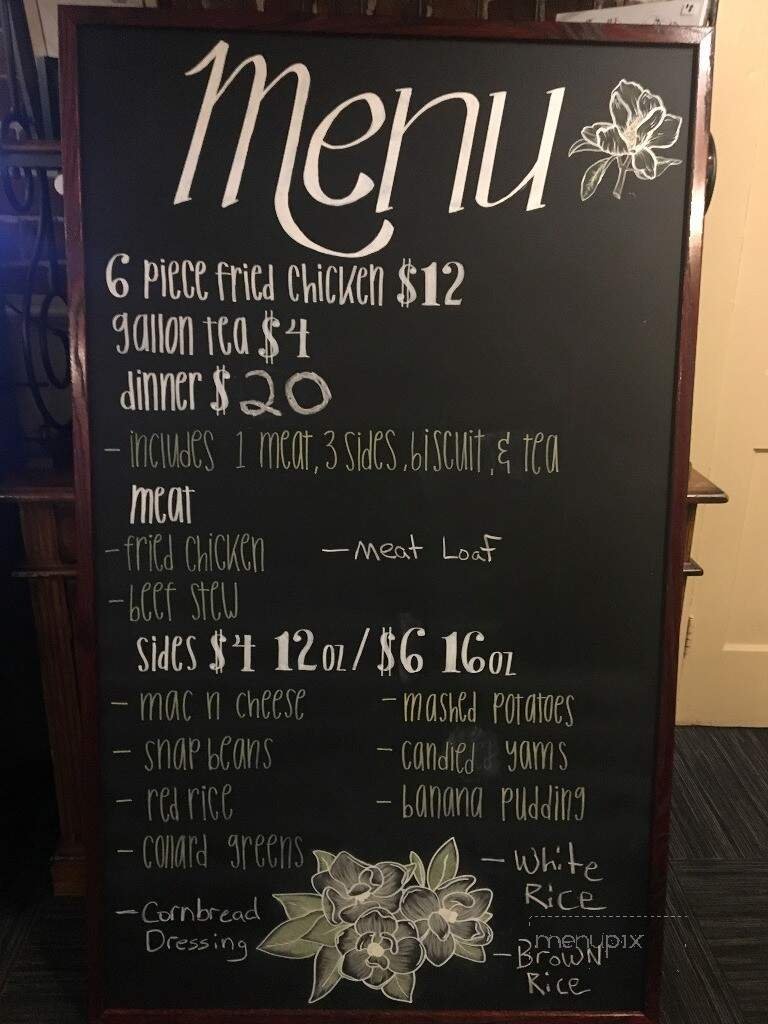 Menu
6 piece fried chicken $12
gallon tea $4
dinner $20
- includes 1 meat, 3 sides, biscuit, & tea
meat
- fried chicken - Meat Loaf
- beef stew
sides $4 12oz / $6 16oz
- mac n cheese - mashed potatoes
- snap beans - candied yams
- red rice - banana pudding
- conard greens - White Rice
- Cornbread Dressing - Brown Rice
menupix